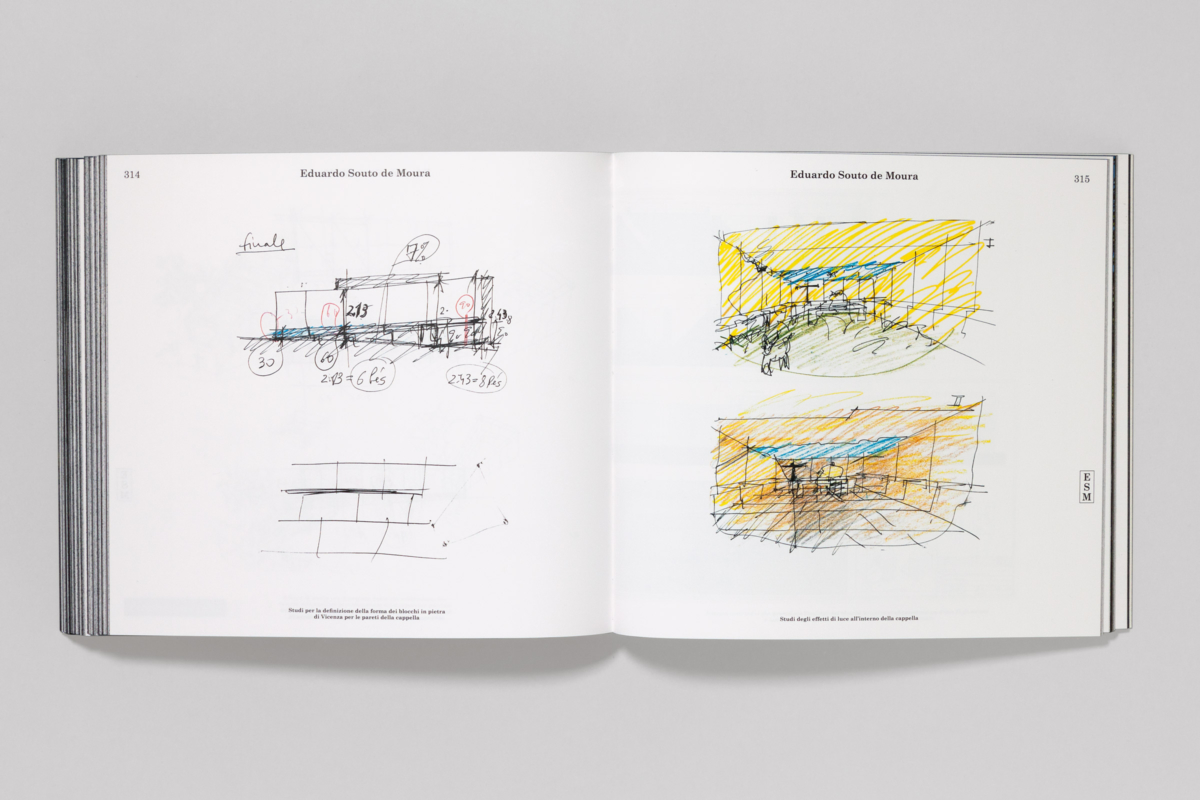 314
Eduardo Souto de Moura
finale
7%
2.13
2.
30
60
2.13 = 6 Pés
2.43 = 8 Pés
Studi per la definizione della forma dei blocchi in pietra
di Vicenza per le pareti della cappella
Eduardo Souto de Moura
315
I
II
ESM
Studi degli effetti di luce all'interno della cappella